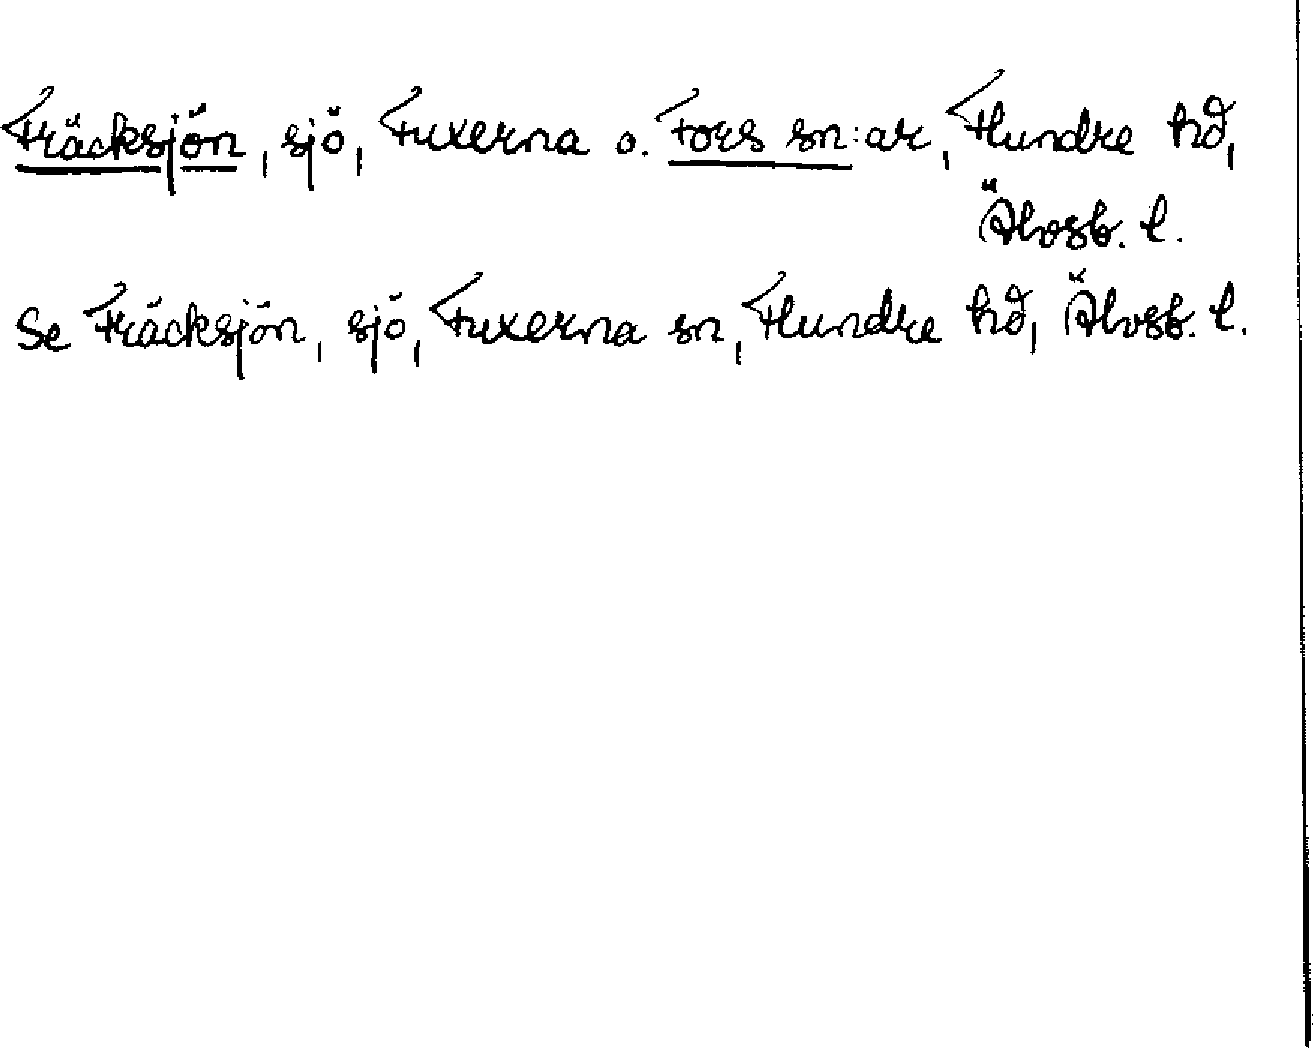 Fräcksjön, sjö, Fuxerna o. Fors sn:ar, Flundre hd,
Älvsb. l.
Se Fräcksjön, sjö, Fuxerna sn, Flundre hd, Älvsb. l.